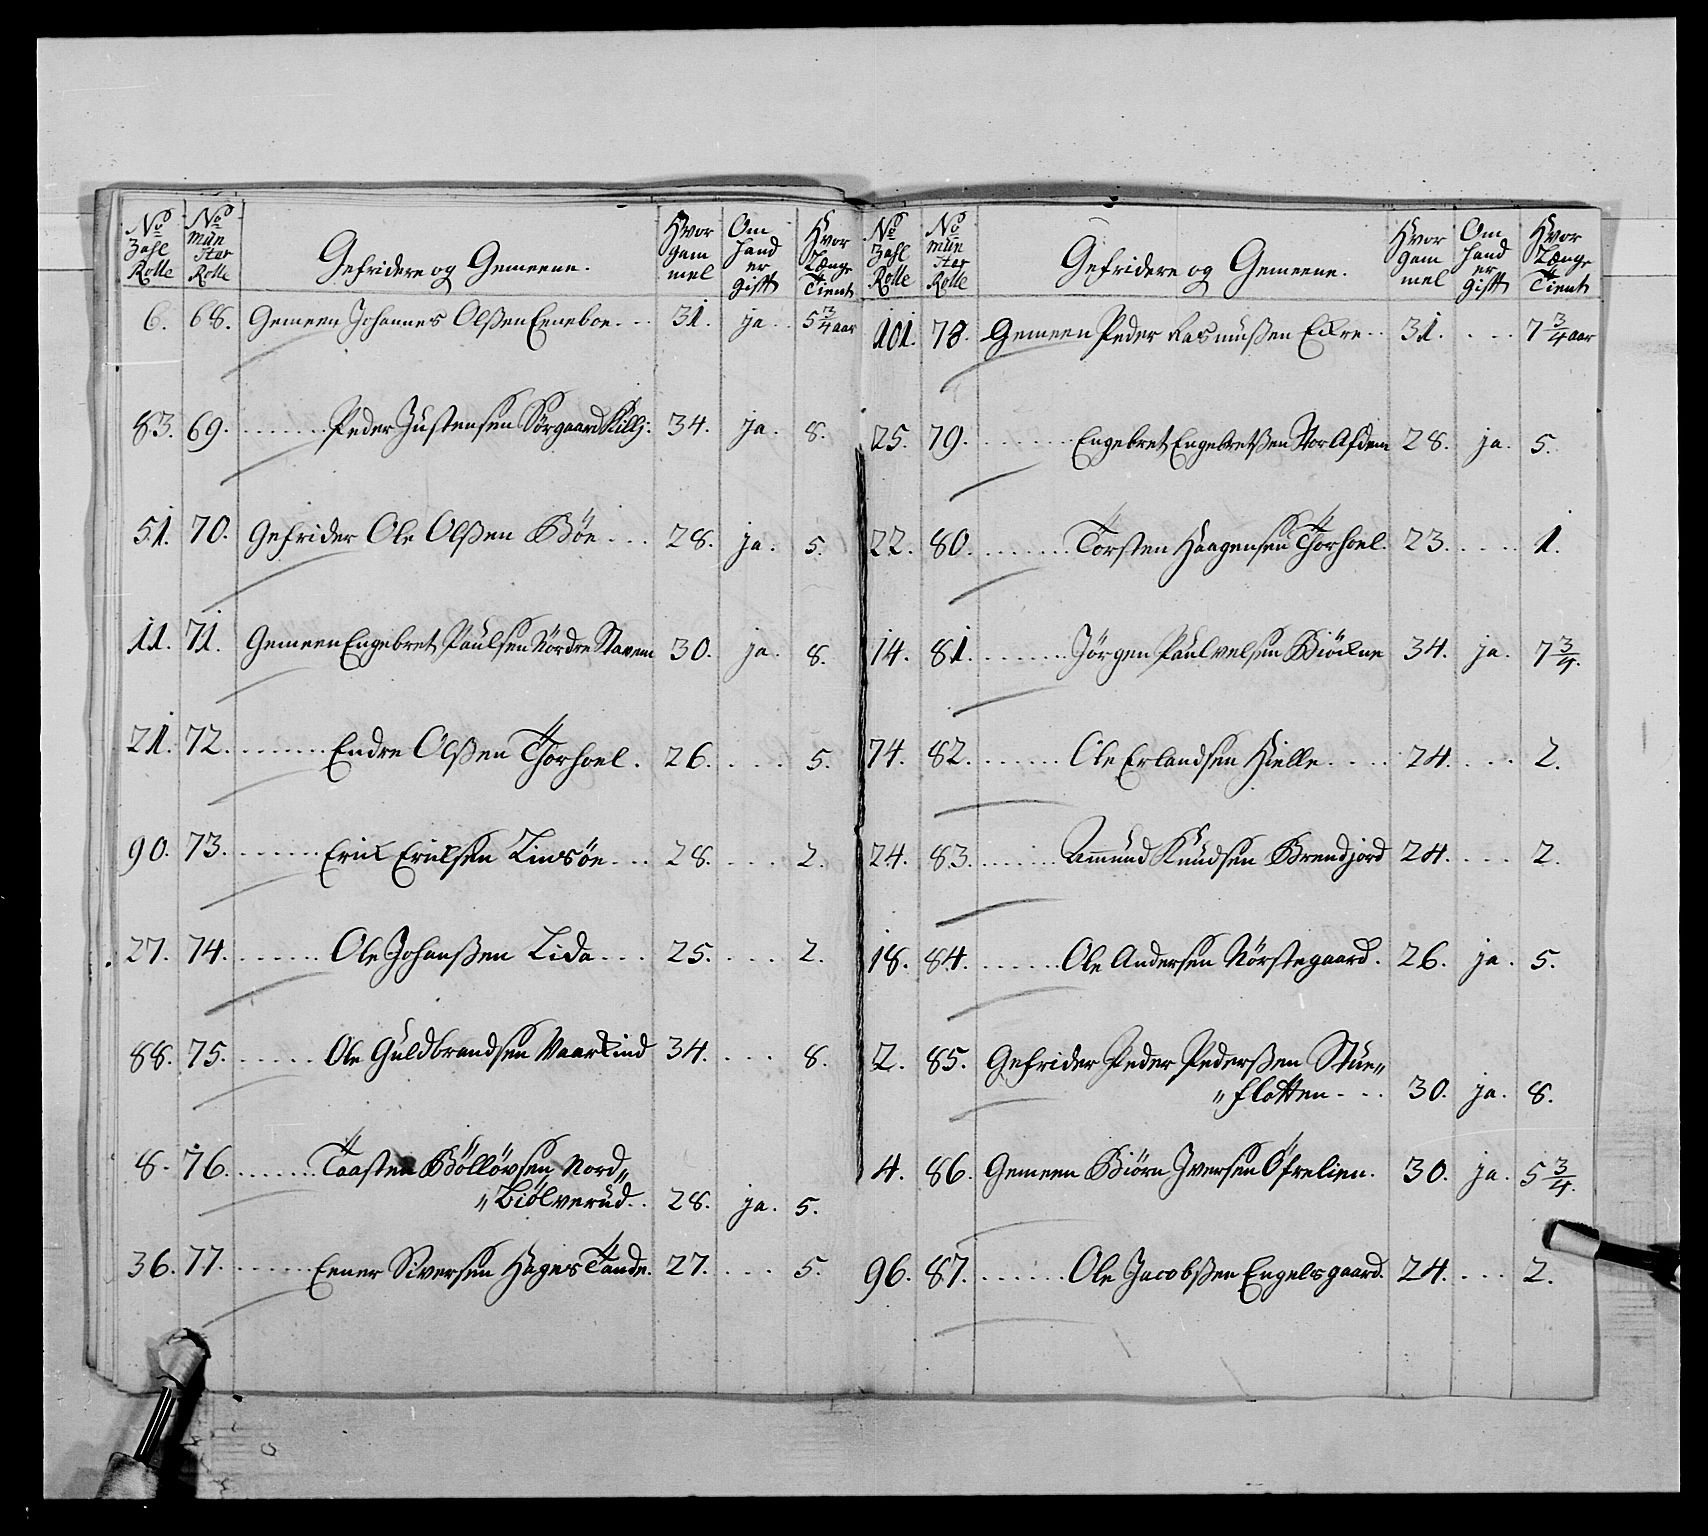 No Zahl Rolle | No Mün ster Rolle | Gefridere og Gemeene. | Hvor gam mel | Om hand er gift | Hvor Længe Tient
6. 68. Gemeen Johannes Olßen Eeneboe... 31. ja.. 5 3/4 aar
83. 69. ........ Peder Justensen Sörgaard Killj: 34. ja. 8.
51. 70. Gefrider Ole Olßen Böe.... 28. ja. 5.
11. 71. Gemeen Engebret Paulsen Nördre Staven 30. ja. 8.
21. 72. ........ Endre Olßen Thorhoel. 26. .... 5.
90. 73. ........ Erick Ericksen Linsöe... 28. .... 2.
27. 74. ........ Ole Johanßen Lida.... 25. .... 2.
88. 75. ...... Ole Guldbrandsen Vaarlind 34. .... 8.
8. 76. ........ Taasten Böllövsen Nord„
„Biölverud.. 28. ja. 5.
36. 77. ........ Eener Siversen Hagestande. 27. .... 5.
No Zahl Rolle | No Mün ster Rolle | Gefridere og Gemeene. | Hvor gam mel | Om hand er gift | Hvor Længe Tient
101. 78. Gemeen Peder Rasmußen Eckre.. 31. .... 7 3/4 aar
25. 79. ........ Engebret Engebretßen Stor Afdem 28. ja. 5.
22. 80. ........ Torsten Haagensen Thorhoel. 23. .... 1.
14. 81. ........ Jörgen Paulvelsen Biöckne 34. ja. 7 3/4.
74. 82. ........ Ole Erlandsen Hielle.... 24. .... 2.
24. 83. ....... Amund Knudsen Brendjord 24. .... 2.
18. 84. ....... Ole Andersen Nörstegaard. 26. ja. 5.
2. 85. Gefrider Peder Pederßen Stue„
„flotten... 30. ja. 8.
4. 86. Gemeen Biörn Iversen Öfrelien. 30. ja. 5 3/4.
96. 87. ....... Ole Jacobßen Engelsgaard. 24. .... 2.